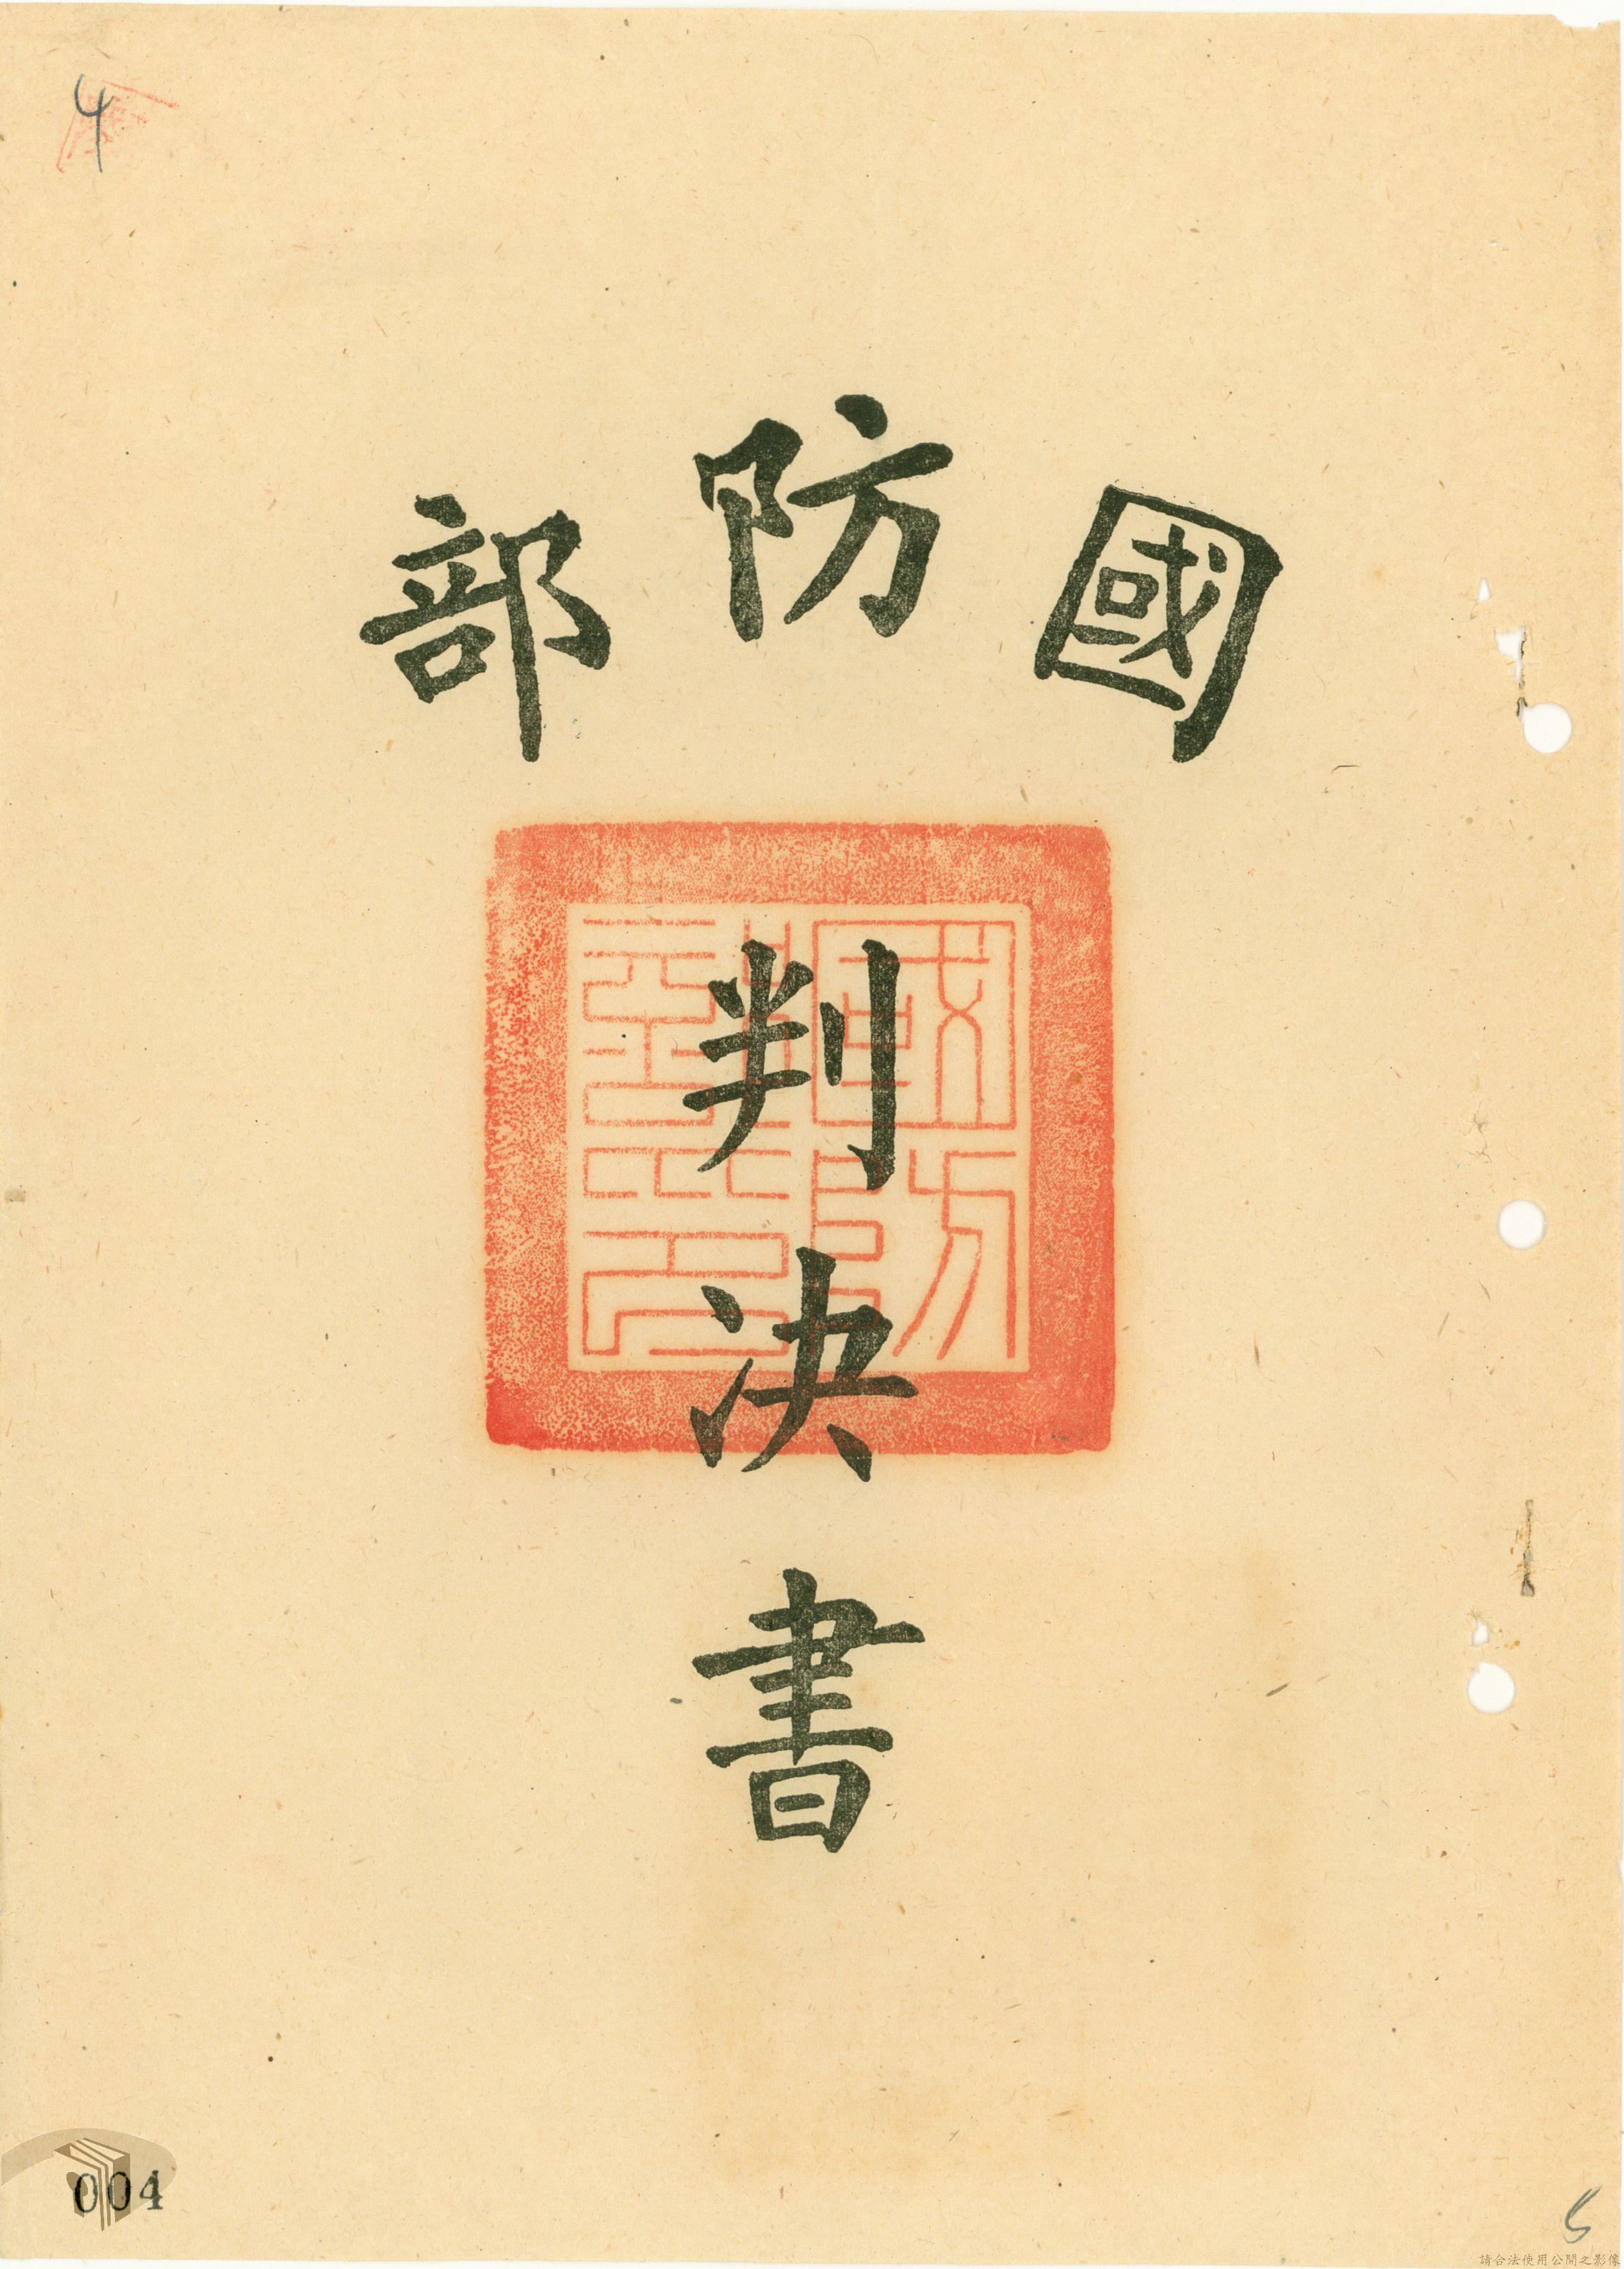 4
國防部
判決書
004
5
請合法使用公開之影像